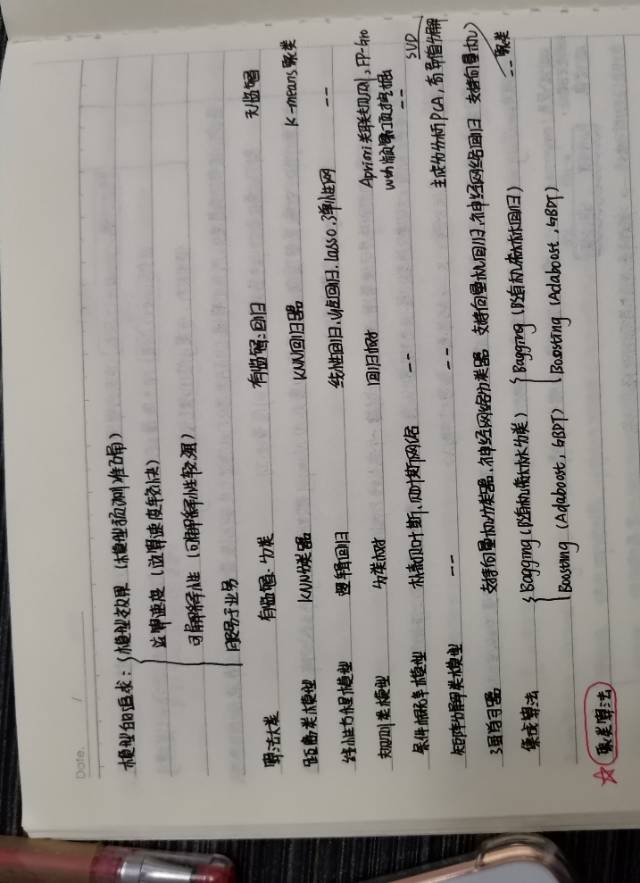 Date. /
模型的追求：{模型效果（模型预测准确）
运算速度（运算速度较快）
可解释性（可解释性较强）
服务于业务
算法大类 有监督：分类 有监督：回归 无监督
距离类模型 KNN分类器 KNN回归器 K-means聚类
线性方程模型 逻辑回归 线性回归、岭回归、Lasso、弹性网 --
规则类模型 分类树 回归树 Apriori关联规则、FP-gro
wth频繁项挖掘
条件概率模型 朴素贝叶斯、贝叶斯网络 -- --
矩阵分解类模型 -- -- 主成分分析PCA，奇异值分解
SVD
强学习器 支持向量机分类器、神经网络分类器 支持向量机回归、神经网络回归 支持向量机（
集成算法 {Bagging（随机森林分类） {Bagging（随机森林回归） -- 聚类
Boosting（Adaboost，GBDT） Boosting（Adaboost，GBDT）
☆ 聚类算法